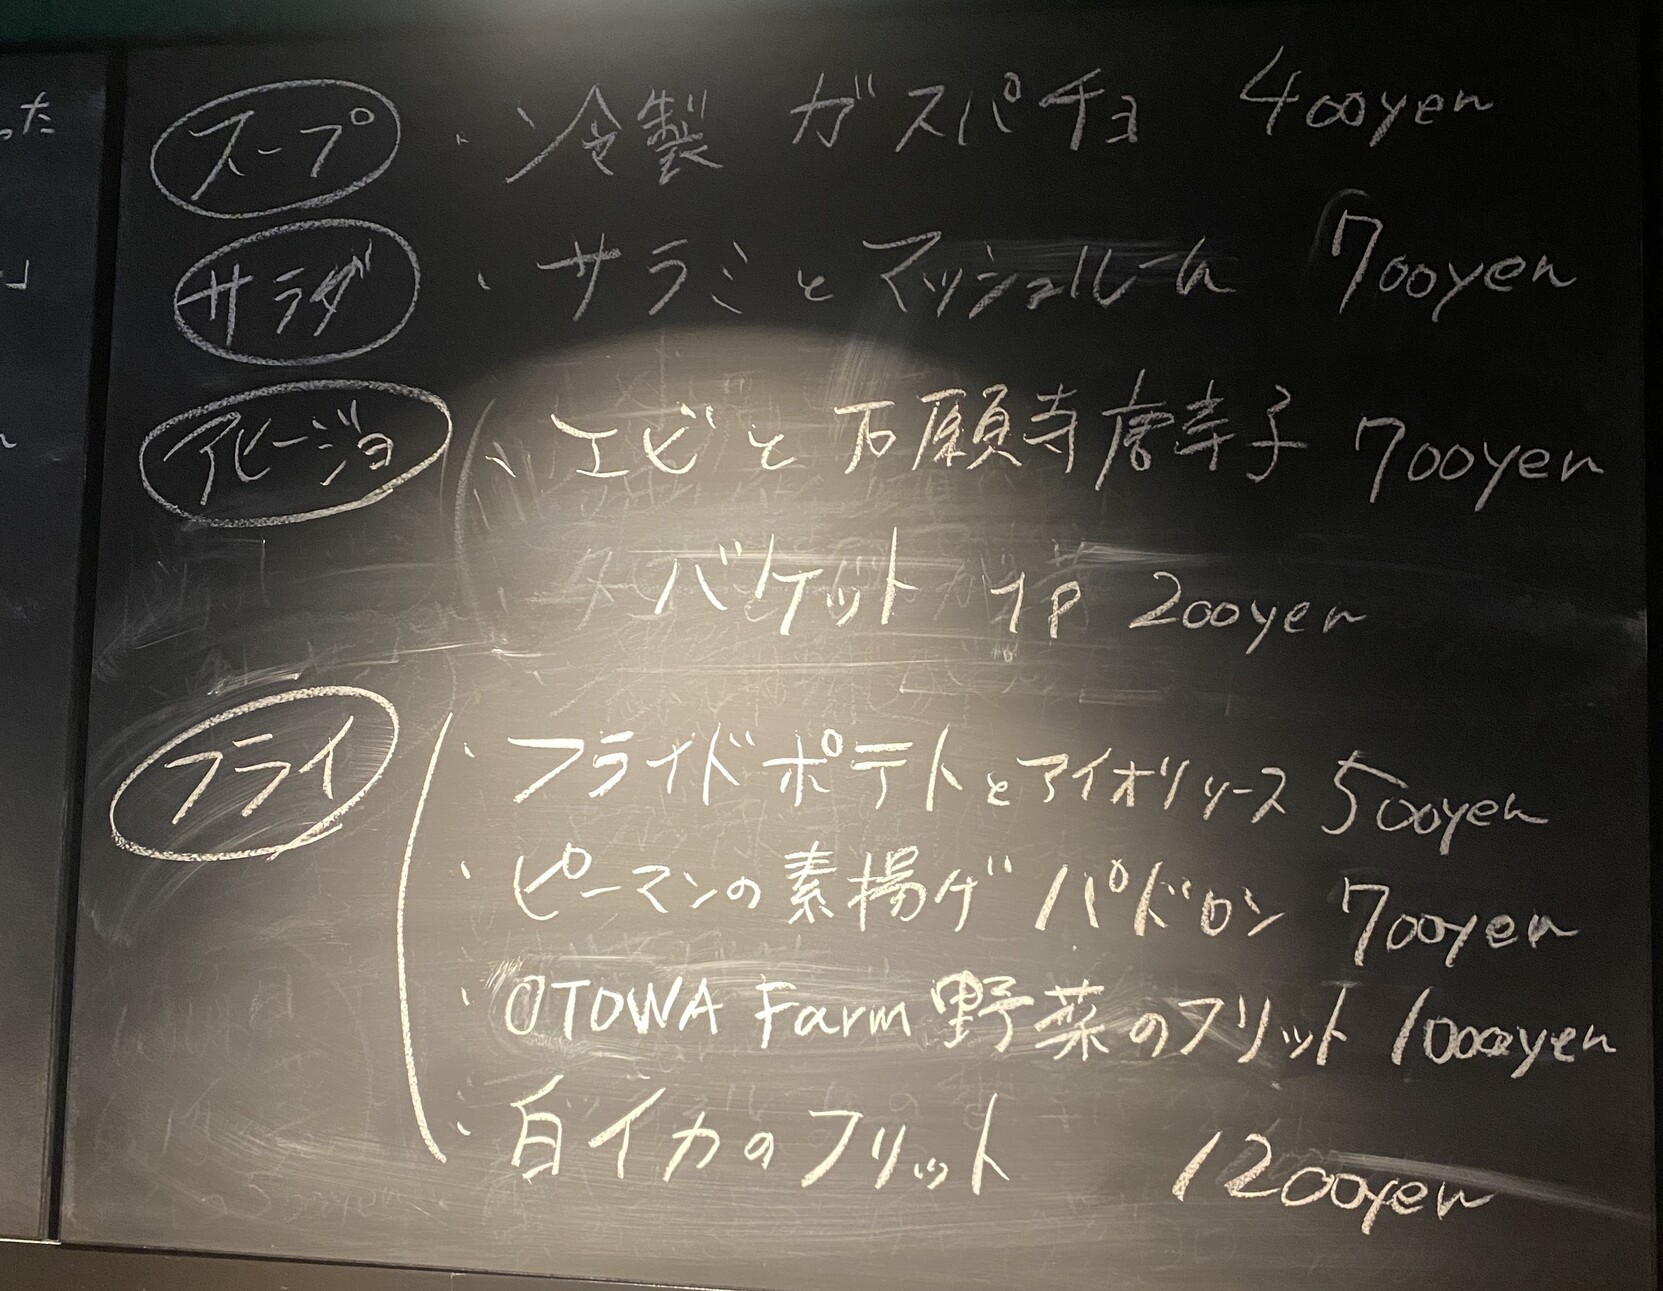 った
」
スープ ・冷製 ガスパチョ 400yen
サラダ ・サラミとマッシュルーム 700yen
アヒージョ ・エビと万願寺唐辛子 700yen
バケット 1P 200yen
フライ ・フライドポテトとアイオリソース 500yen
・ピーマンの素揚げ パドロン 700yen
・OTOWA Farm 野菜のフリット 1000yen
・白イカのフリット 1200yen